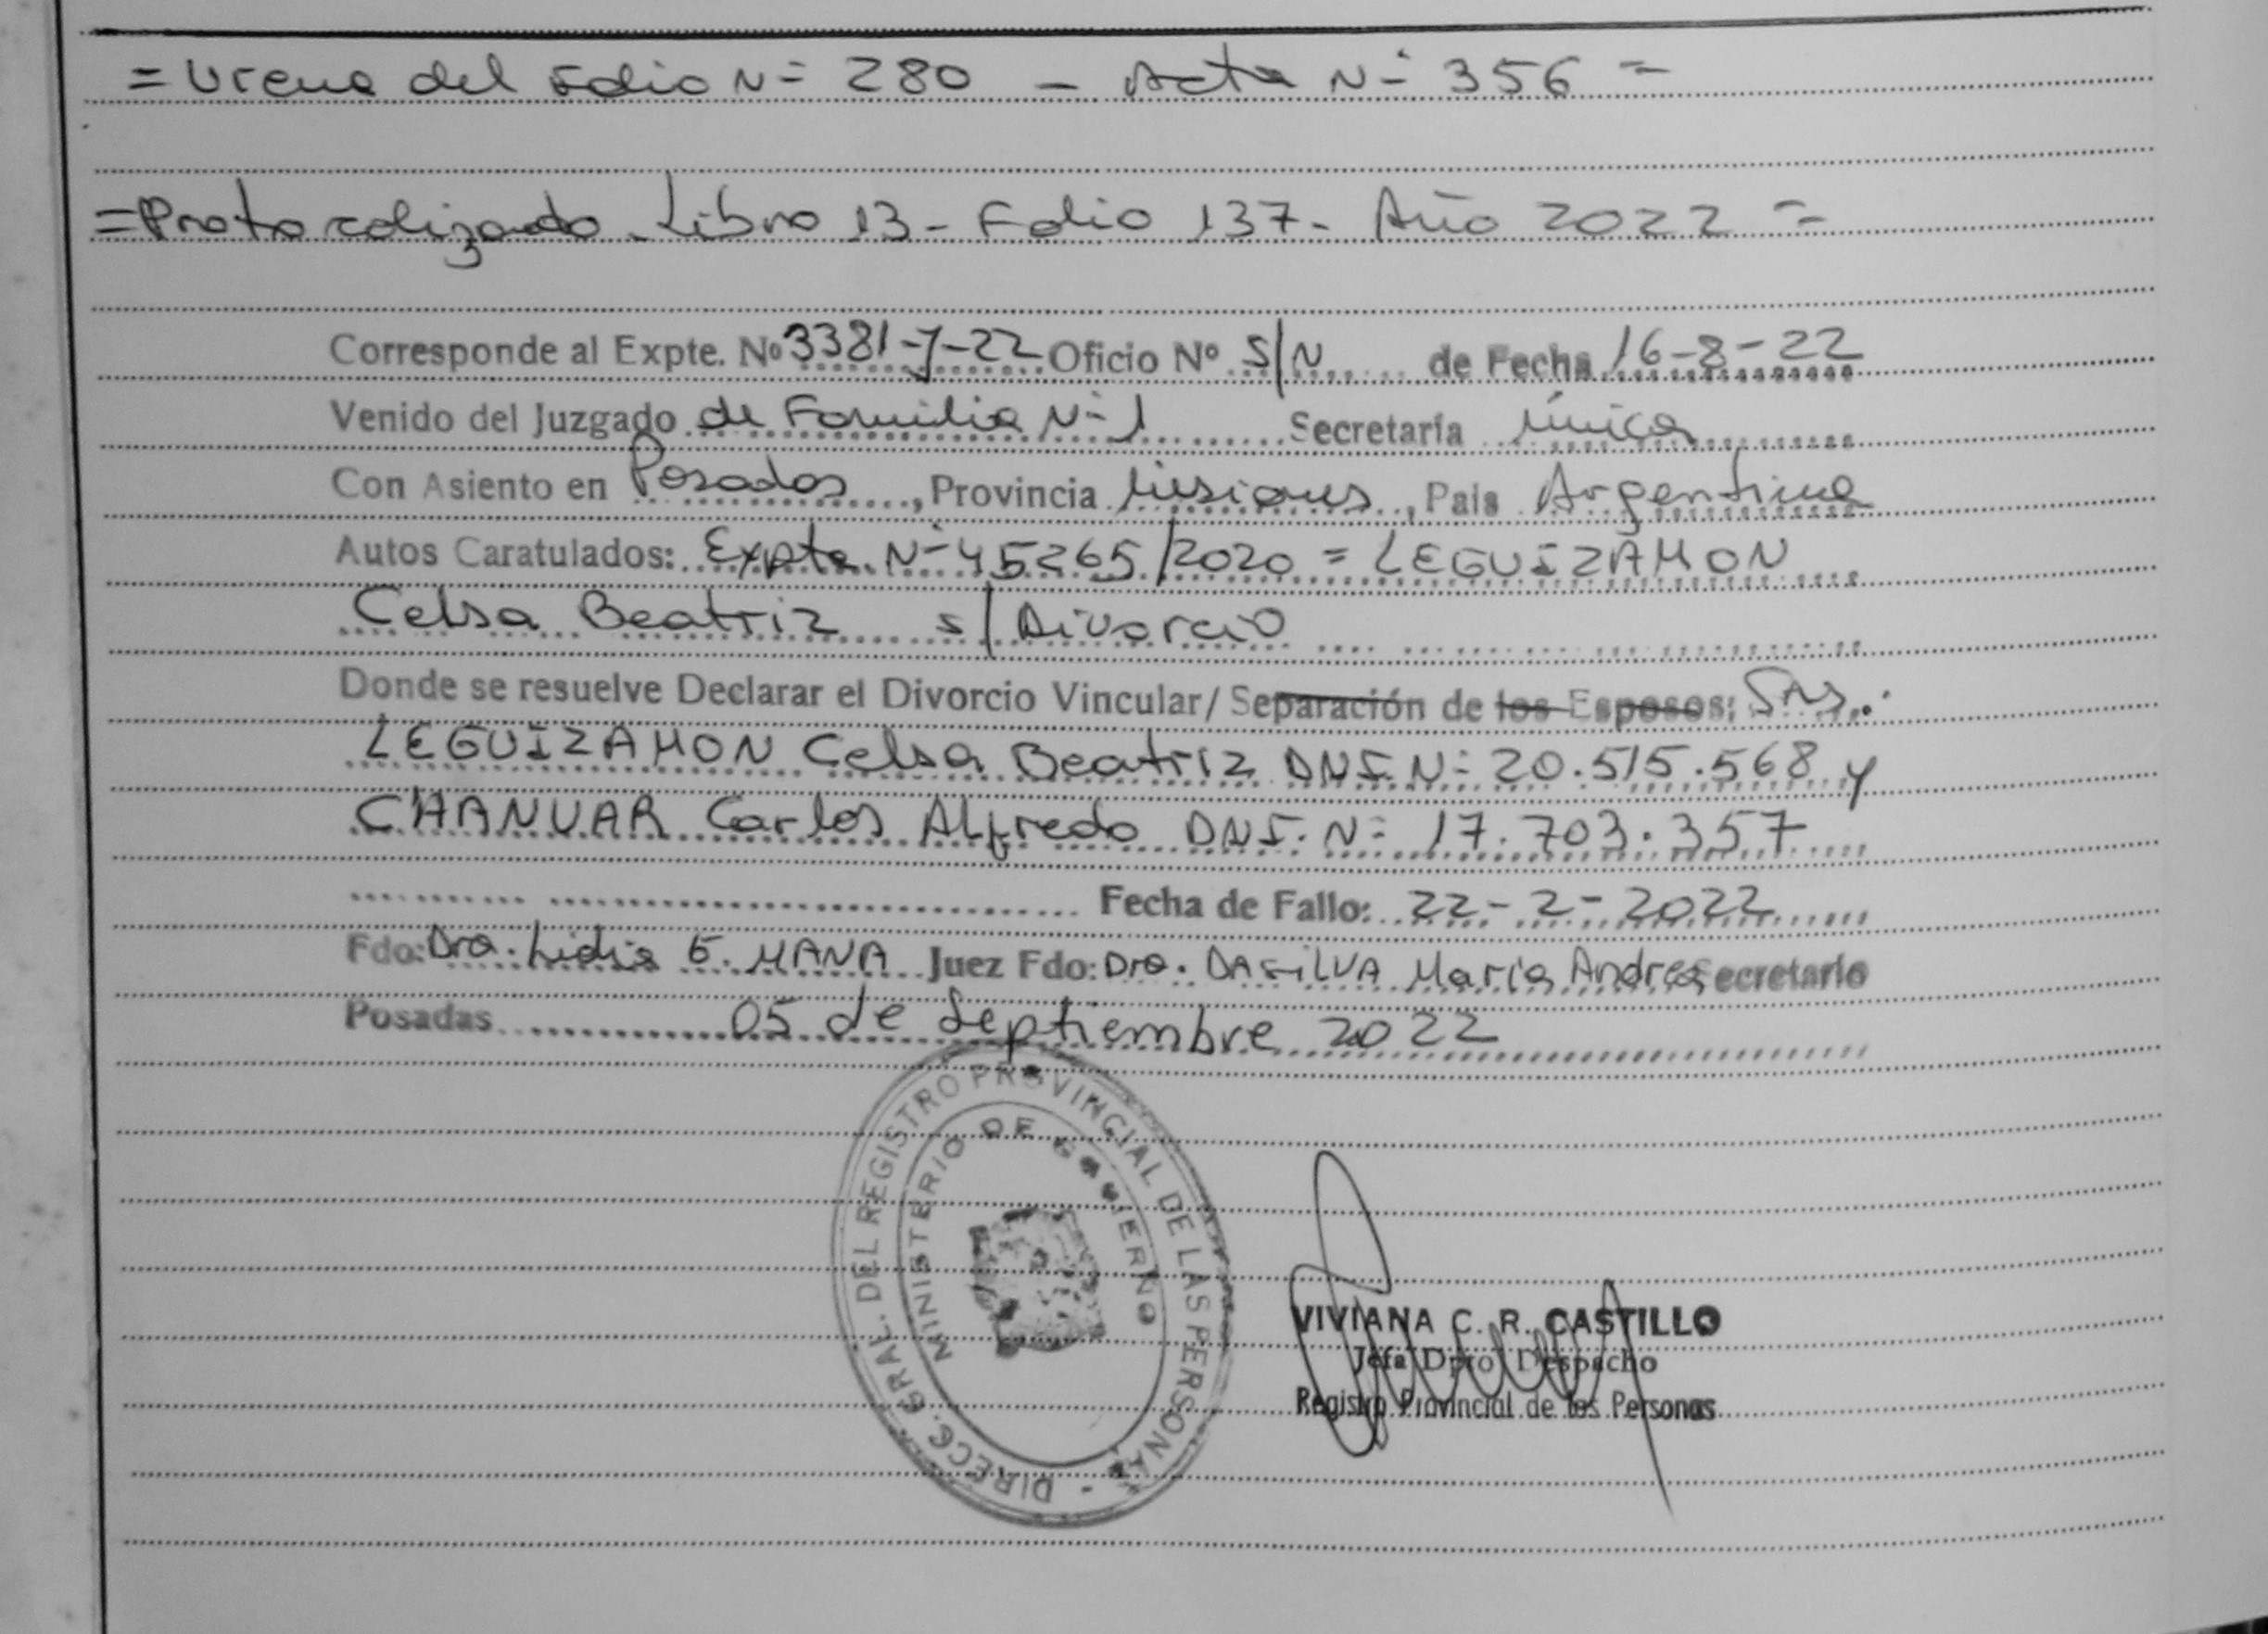 =Viene del Folio Nº 280 - Acta Nº 356=
=Protocolizado Libro 13- Folio 137- Año 2022=
Corresponde al Expte. Nº 3381-Y-22 Oficio Nº S/N de Fecha 16-8-22
Venido del Juzgado de Familia Nº 1 Secretaría única
Con Asiento en Posadas, Provincia Misiones, País Argentina
Autos Caratulados: Expte. Nº 45265/2020 = LEGUIZAMON
Celsa Beatriz s/Divorcio
Donde se resuelve Declarar el Divorcio Vincular/ Separación de los Esposos: Srs.:
LEGUIZAMON Celsa Beatriz DNI. Nº 20.515.568 y
CHANVAR Carlos Alfredo DNI. Nº 17.703.357
Fecha de Fallo: 22-2-2022
Fdo: Dra. Lidia E. MANA Juez Fdo: Dra. DASILVA María Andrea Secretario
Posadas 05 de Septiembre 2022
DIRECC. GRAL. DEL REGISTRO PROVINCIAL DE LAS PERSONAS
MINISTERIO DE GOBIERNO
VIVIANA C. R. CASTILLO
Jefa Dpto Despacho
Registro Provincial de las Personas